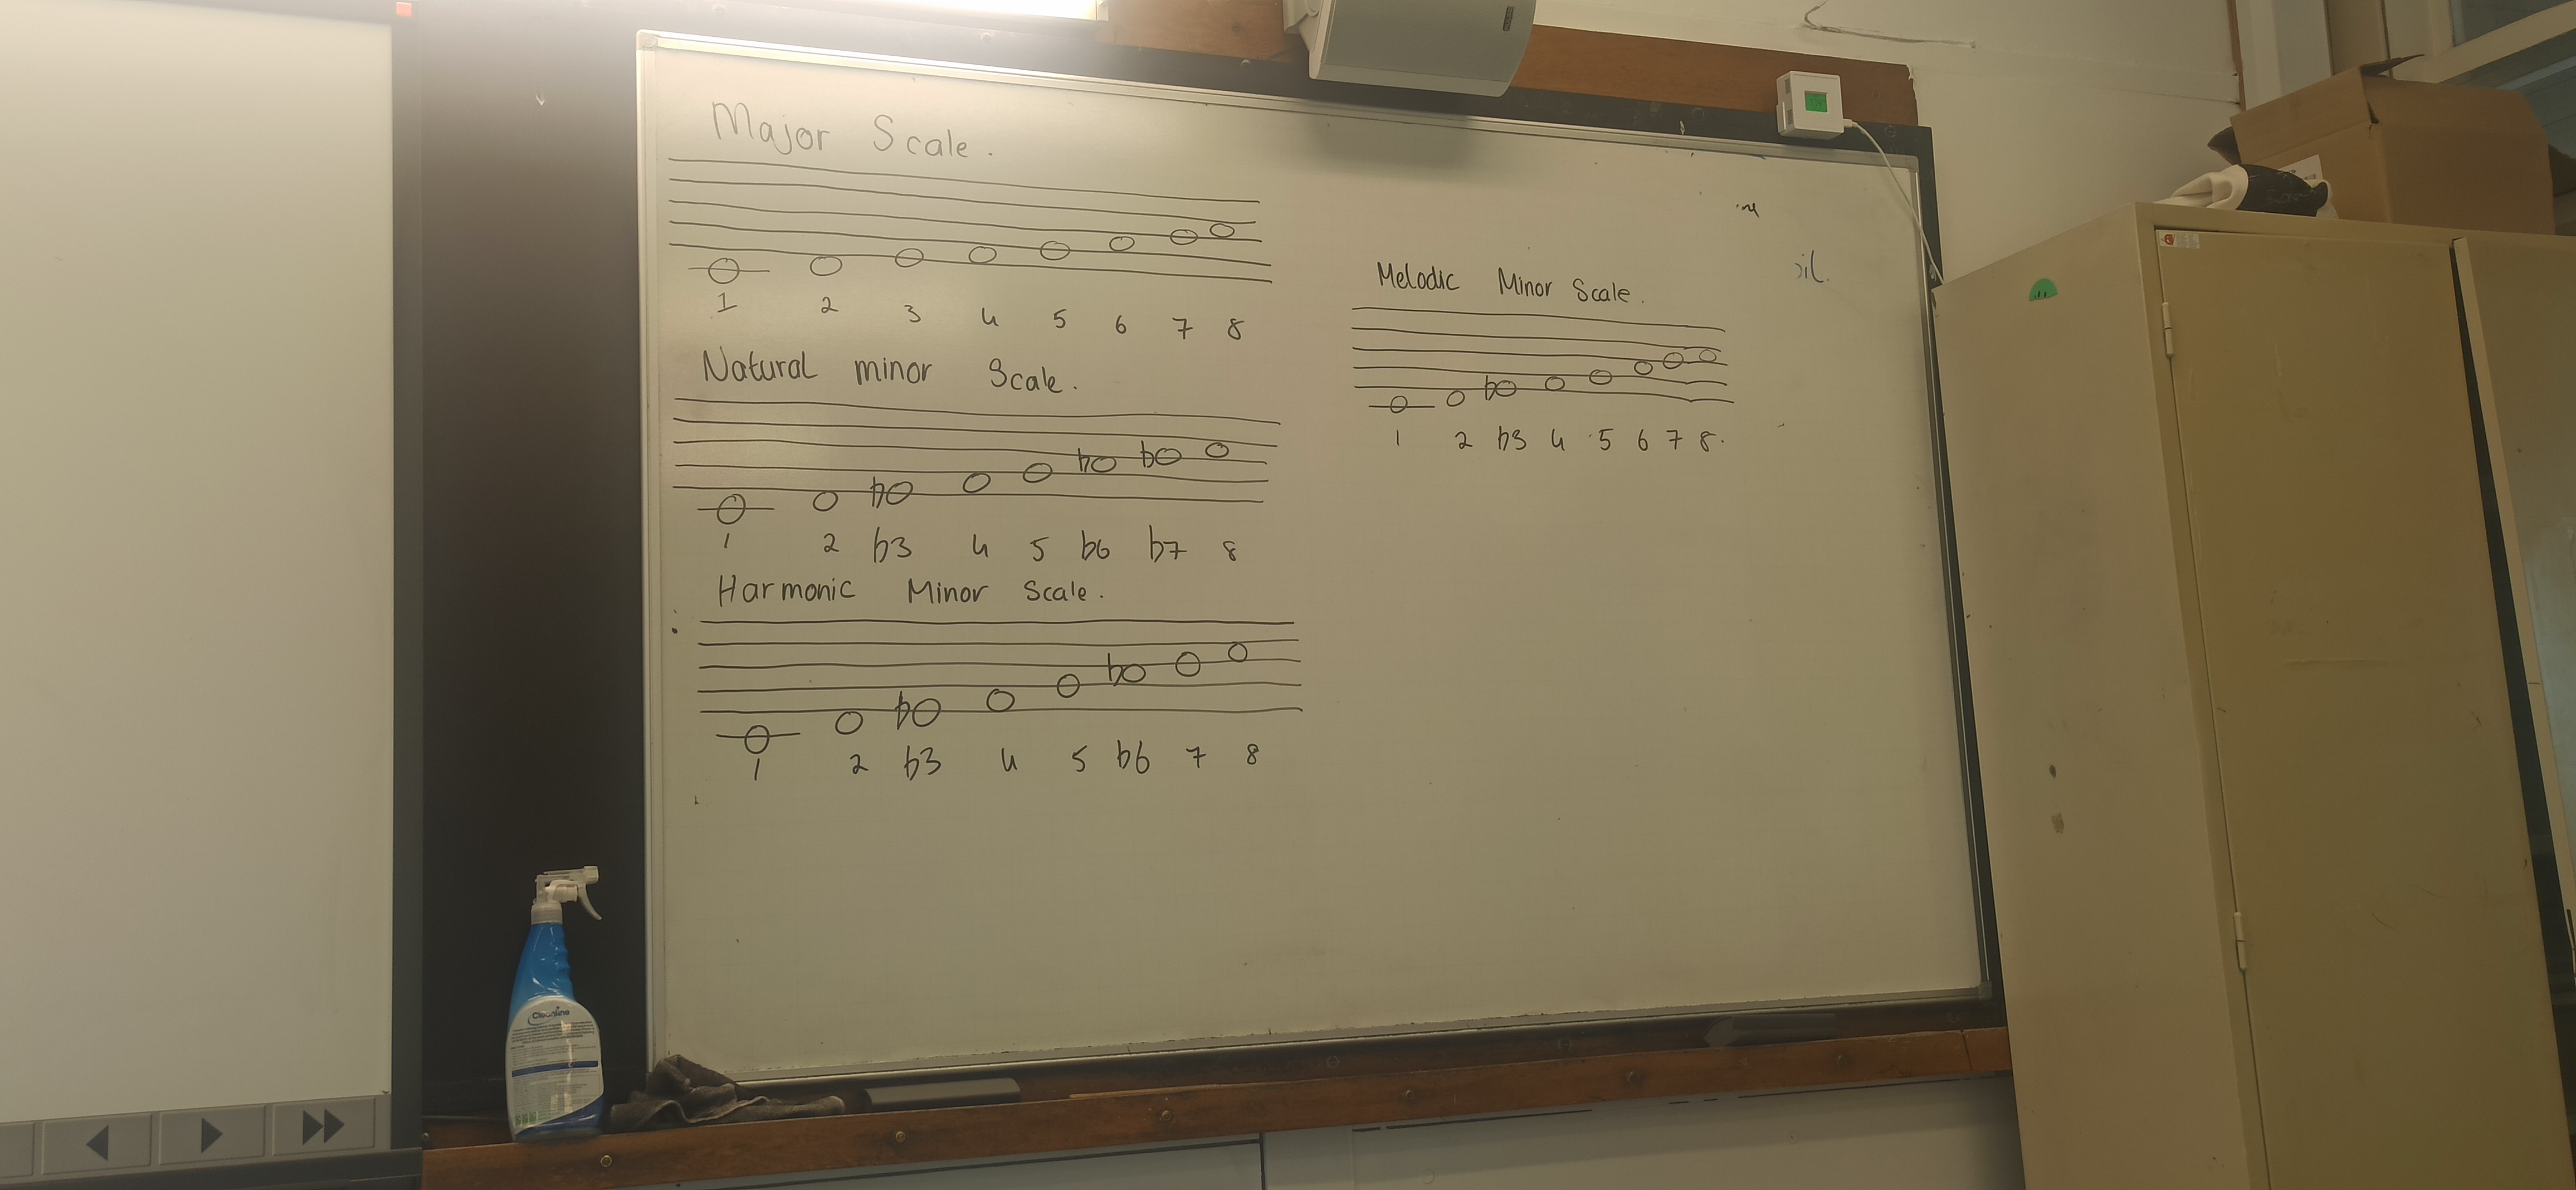 Major Scale.
1 2 3 4 5 6 7 8
Natural minor Scale.
1 2 b3 4 5 b6 b7 8
Harmonic Minor Scale.
1 2 b3 4 5 b6 7 8
Melodic Minor Scale.
1 2 b3 4 5 6 7 8.
Cleanline